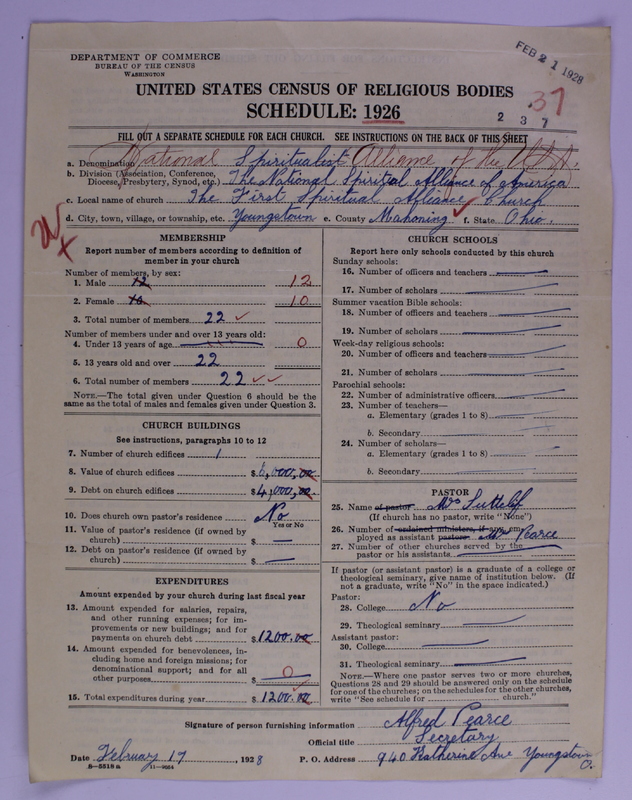 DEPARTMENT OF COMMERCE
BUREAU OF THE CENSUS
WASHINGTON
FEB 21 1928
UNITED STATES CENSUS OF RELIGIOUS BODIES
SCHEDULE: 1926
37
2 3 7
FILL OUT A SEPARATE SCHEDULE FOR EACH CHURCH. SEE INSTRUCTIONS ON THE BACK OF THIS SHEET
a. Denomination National Spiritualist Alliance of the U.S.A.
b. Division (Association, Conference,
Diocese, Presbytery, Synod, etc.) The National Spiritual Alliance of America
c. Local name of church The First Spiritual Alliance Church
d. City, town, village, or township, etc. Youngstown e. County Mahoning f. State Ohio.
MEMBERSHIP
Report number of members according to definition of
member in your church
Number of members, by sex:
1. Male 12 12
2. Female 10 10
3. Total number of members 22
Number of members under and over 13 years old:
4. Under 13 years of age 0
5. 13 years old and over 22
6. Total number of members 22
NOTE.—The total given under Question 6 should be the
same as the total of males and females given under Question 3.
CHURCH BUILDINGS
See instructions, paragraphs 10 to 12
7. Number of church edifices 1
8. Value of church edifices $6,000.00
9. Debt on church edifices $4,000.00
10. Does church own pastor's residence No
Yes or No
11. Value of pastor's residence (if owned by
church) $ —
12. Debt on pastor's residence (if owned by
church) $ —
EXPENDITURES
Amount expended by your church during last fiscal year
13. Amount expended for salaries, repairs,
and other running expenses; for im-
provements or new buildings; and for
payments on church debt $1200.00
14. Amount expended for benevolences, in-
cluding home and foreign missions; for
denominational support; and for all
other purposes $ 0
15. Total expenditures during year $1200.00
CHURCH SCHOOLS
Report here only schools conducted by this church
Sunday schools:
16. Number of officers and teachers —
17. Number of scholars —
Summer vacation Bible schools:
18. Number of officers and teachers —
19. Number of scholars —
Week-day religious schools:
20. Number of officers and teachers —
21. Number of scholars —
Parochial schools:
22. Number of administrative officers —
23. Number of teachers—
a. Elementary (grades 1 to 8) —
b. Secondary —
24. Number of scholars—
a. Elementary (grades 1 to 8) —
b. Secondary —
PASTOR
25. Name of pastor Mrs Sutclif
(If church has no pastor, write "None")
26. Number of ordained ministers, if any, em-
ployed as assistant pastors Pearce
27. Number of other churches served by the
pastor or his assistants —
If pastor (or assistant pastor) is a graduate of a college or
theological seminary, give name of institution below. (If
not a graduate, write "No" in the space indicated.)
Pastor:
28. College No
29. Theological seminary —
Assistant pastor:
30. College —
31. Theological seminary —
NOTE.—Where one pastor serves two or more churches,
Questions 28 and 29 should be answered only on the schedule
for one of the churches; on the schedules for the other churches,
write "See schedule for church."
Signature of person furnishing information Alfred Pearce
Official title Secretary
Date February 17, 1928 P. O. Address 940 Katherine Ave Youngstown O.
8—5518a 11—9054